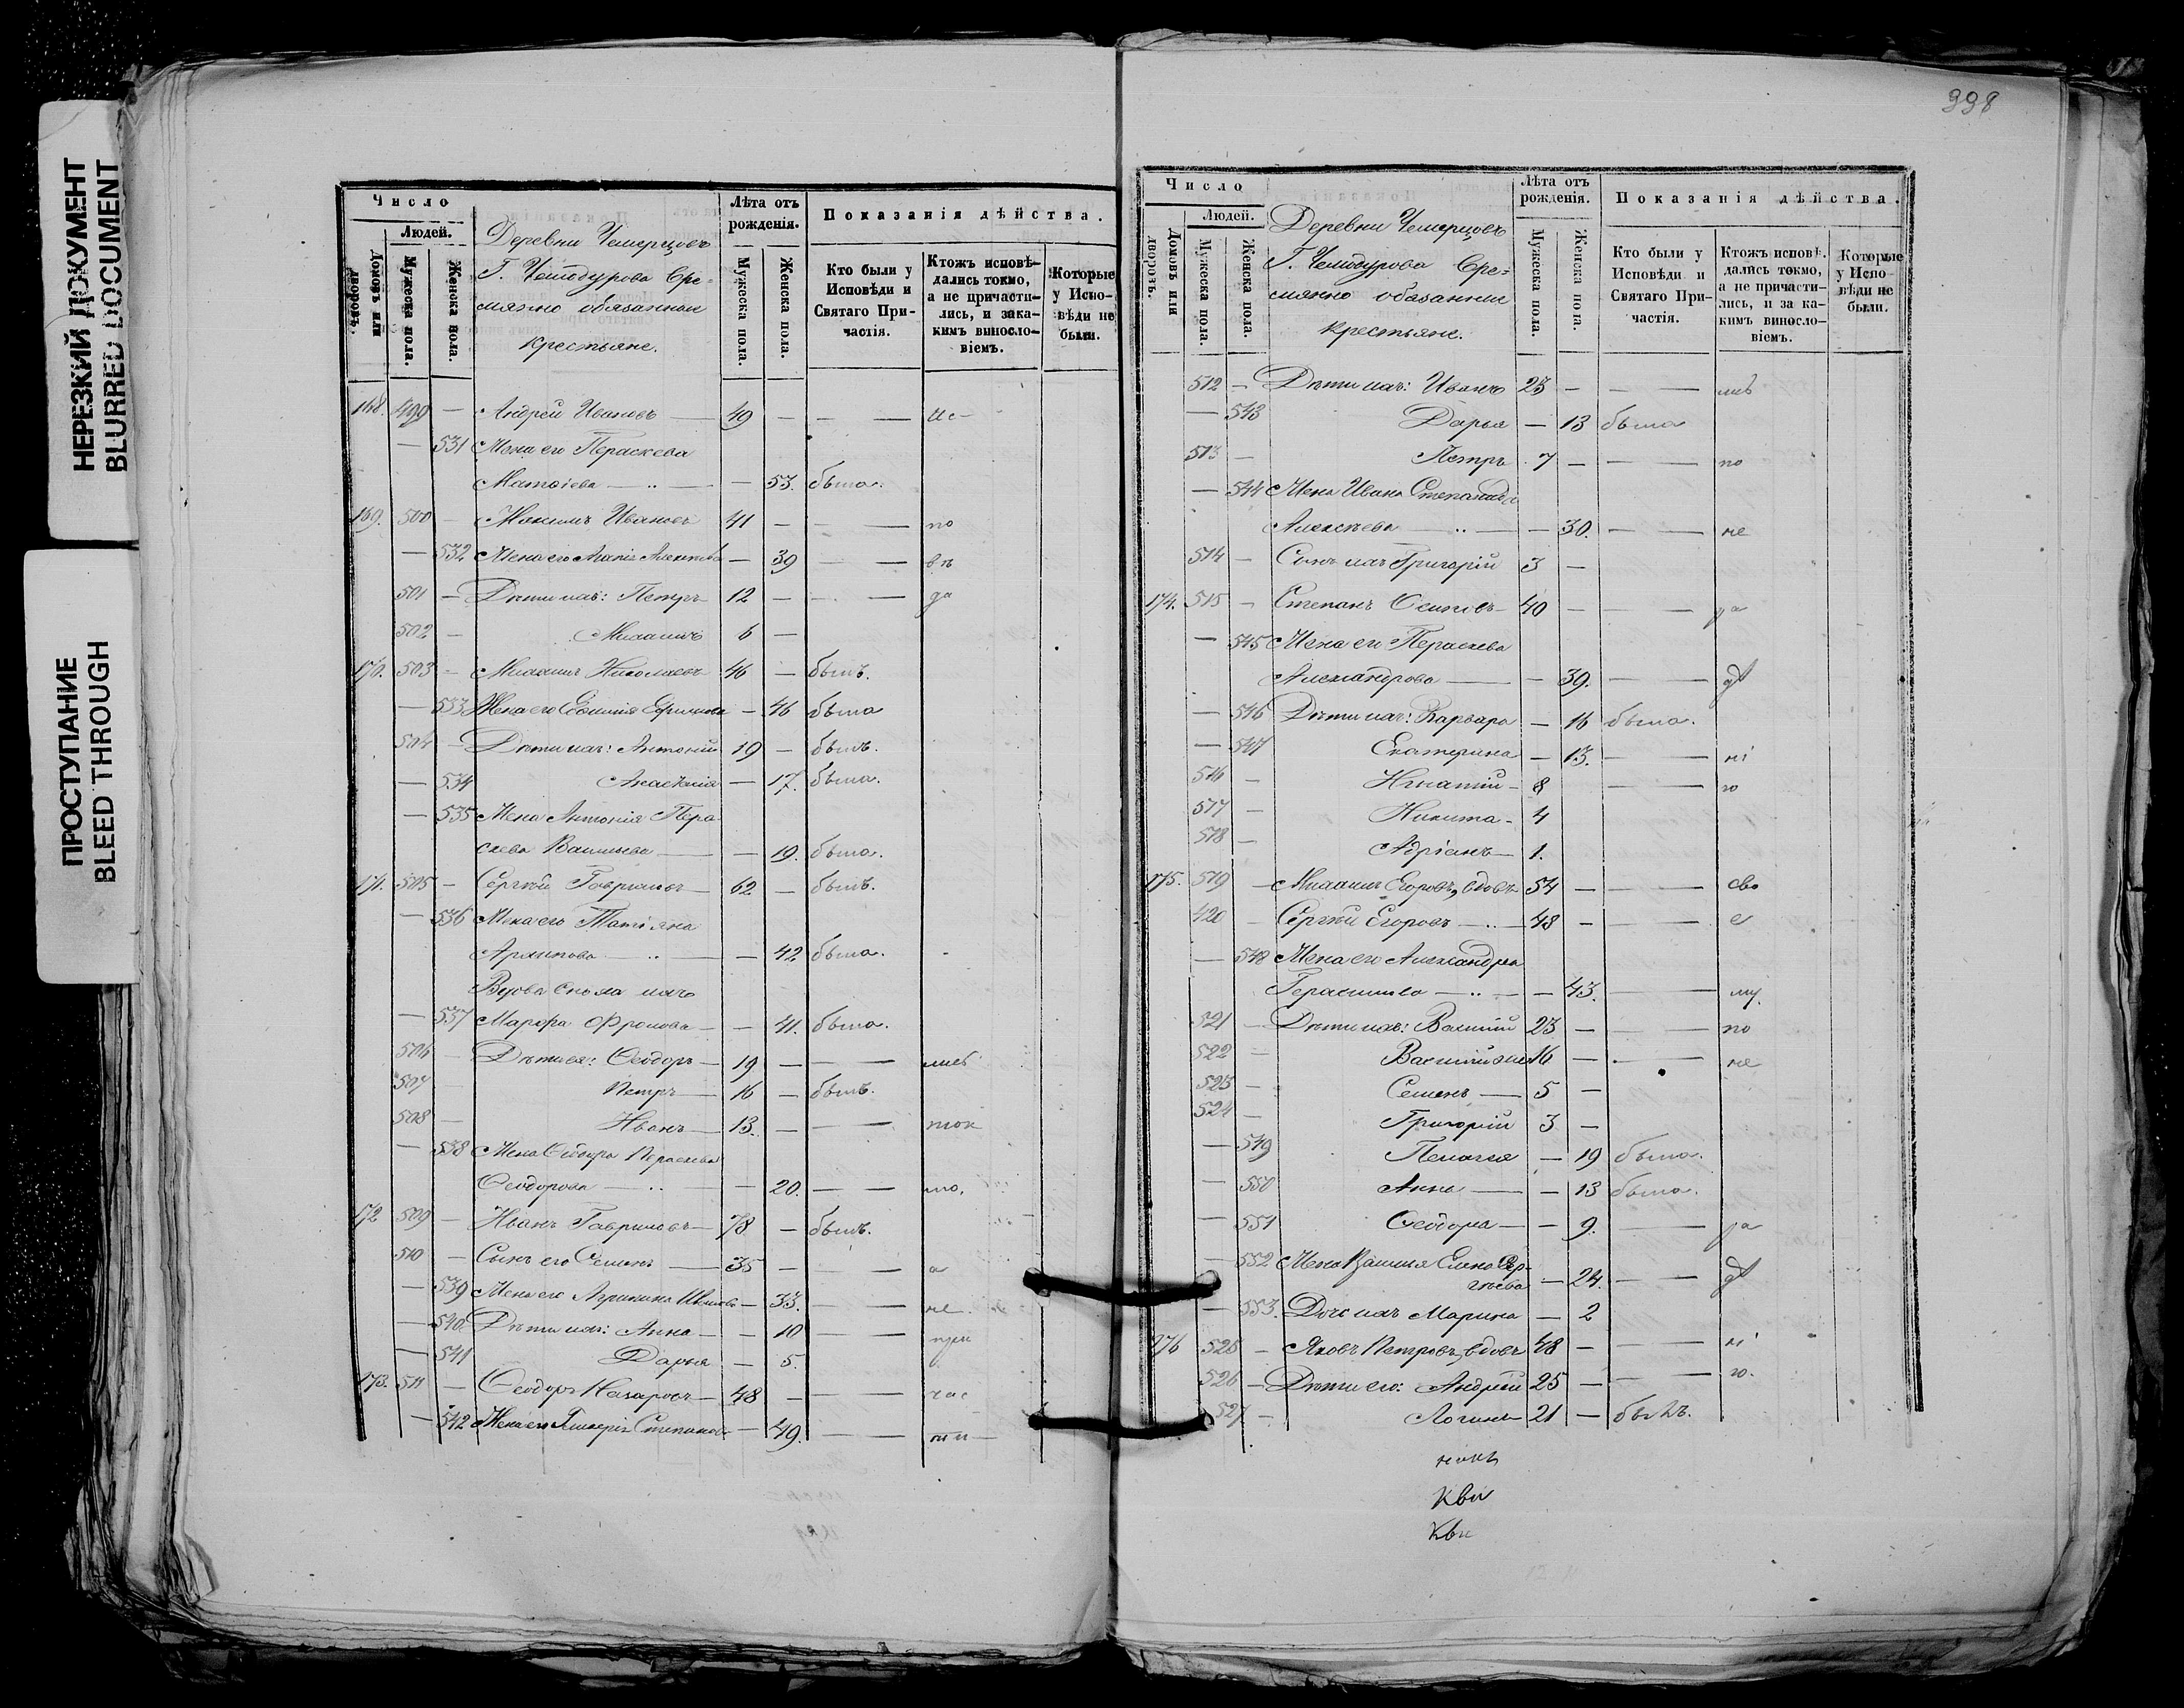 НЕРЕЗКИЙ ДОКУМЕНТ
BLURRED DOCUMENT
ПРОСТУПАНИЕ
BLEED THROUGH
Число
Людей.
Домовъ или дворовъ.
Мужеска пола.
Женска пола.
Деревни Чемерцовъ
Г. Чемодурова Вре-
мянно обязанные
крестьяне.
Лѣта отъ рожденія.
Мужеска пола.
Женска пола.
Показанія дѣйства.
Кто были у Исповѣди и Святаго При-частія.
Ктожъ исповѣ-дались токмо, а не причасти-лись, и зака-кимъ винosло-віемъ.
Которые у Испо-вѣди не были.
168. 499 — Андрей Ивановъ — 49 — — — Ис-
— 531 Жена его Параскева
Матѳіева — „ — — 53. была.
169. 500 — Максимъ Ивановъ 41 — — — по
— 532 Жена его Алексѣева — 39 — — вѣ
501 — Дѣти ихъ: Петръ 12 — — — да
502 — Михаилъ 6 —
170. 503 — Михаилъ Николаевъ 46 — былъ.
— 533 Жена его Евфимія Ефимова — 46 была
504 — Дѣти ихъ: Антоній 19 — былъ.
— 534 Анастасія — 17. была.
— 535 Жена Антонія Пера-
скева Васильева — — 19. была.
171. 505 — Сергѣй Гавриловъ — 62 — былъ.
— 536 Жена его Татіяна
Архипова — „ — — 42 была.
Вдова сноха ихъ
— 537 Марфа Фролова — — 41. была.
506 — Дѣти ея: Ѳеодоръ — 19 — — — лись
507 Петръ — 16 — былъ.
508 — Иванъ — 13. — — — ток
— 538 Жена Ѳеодора Параскева
Ѳеодорова — „ — — 20. — — мо,
172 509 — Иванъ Гавриловъ — 78 — былъ.
510 — Сынъ его Семенъ — 35 — — — а
— 539 Жена его Агрипина Иванова — 33. — — не
— 540. Дѣти ихъ: Анна — — 10 — — при
— 541 Дарья — 5.
173. 511 — Ѳеодоръ Назаровъ — 48 — — — час
— 542 Жена его Гликерія Степанова — 49. — — ти —
998
Число
Людей.
Домовъ или дворовъ.
Мужеска пола.
Женска пола.
Деревни Чемерцовъ
Г. Чемодурова Вре-
мянно обязанные
крестьяне.
Лѣта отъ рожденія.
Мужеска пола.
Женска пола.
Показанія дѣйства.
Кто были у Исповѣди и Святаго При-частія.
Ктожъ исповѣ.дались токмо, а не причасти-лись, и за ка-кимъ винosло-віемъ.
Которые у Испо-вѣди не были.
512 — Дѣти ихъ: Иванъ 23 — — — лись
— 543 Дарья — 13 была
513 — Петръ 7 — — — по
— 544 Жена Ивана Степанида
Алексѣева — „ — — 30. — — не
514 — Сынъ ихъ Григорій 3 —
174. 515 — Степанъ Осиповъ — 40 — — — ра
— 545 Жена его Параскева
Александрова — — 39. — — дѣ
— 546 Дѣти ихъ: Варвара — 16 была.
— 547 Екатерина — 13. — — ні
516 — Игнатій — 8 — — ю
517 — Никита — 4
518 — Адріанъ — 1.
175. 519 — Михаилъ Егоровъ, вдовъ 54 — — — сво
420 — Сергѣй Егоровъ — „ — 48 — — — е
— 548 Жена его Александра
Герасимова — „ — — 43. — му.
521 — Дѣти ихъ: Василій 23 — — — по
522 — Василій же 16 — — — не
523 — Семенъ — 5 —
524 — Григорій 3 —
— 549 Пелагея — 19 была.
— 550 Анна — — 13 была.
— 551 Ѳеодора — — 9. — ра
— 552 Жена Василья Елена Сер-
гѣева — 24. — — дѣ
— 553. Дочь ихъ Марина — 2
176 525 — Яковъ Петровъ, вдовъ 48 — — — ні
526 — Дѣти его: Андрей 25 — — — ю.
527 — Логинъ 21 — былъ.